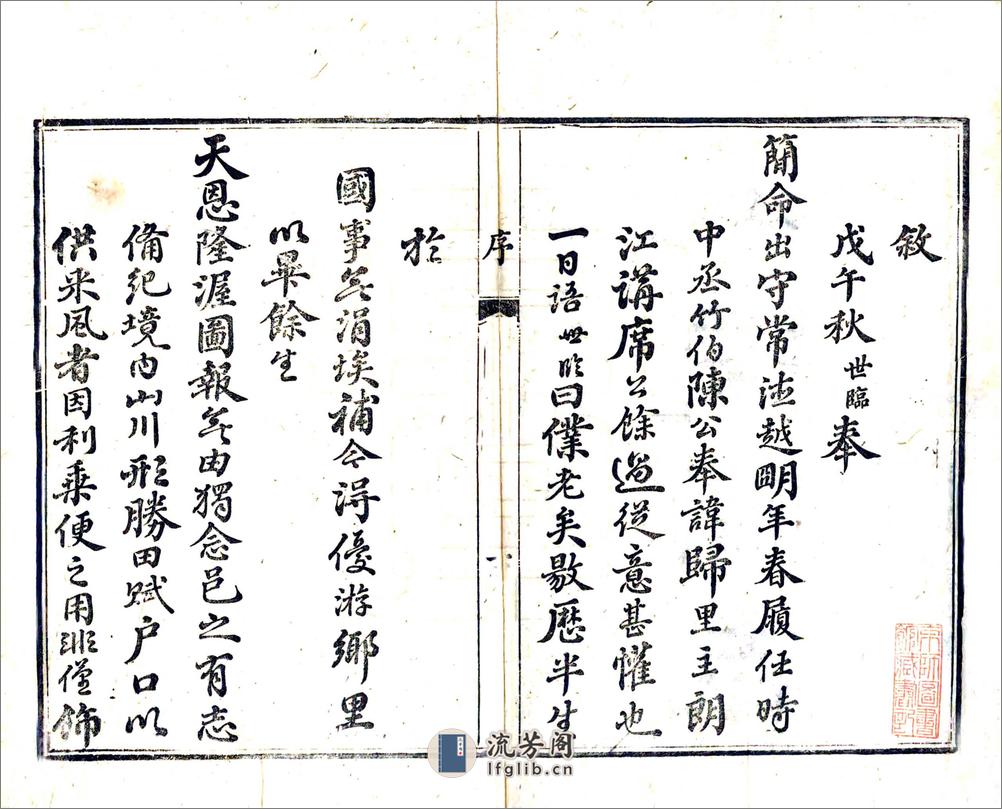 敘
戊午秋世臨奉
簡命出守常德越明年春履任時
中丞竹伯陳公奉諱歸里主朗
江講席公餘過從意甚懽也
一日語世臨曰僕老矣敭歷半生
序
一
於
國事無涓埃補今得優游鄉里
以畢餘生
天恩隆渥圖報無由獨念邑之有志
備紀境內山川形勝田賦户口以
供采風者因利乘便之用非僅飾
流芳阁
lfglib.cn